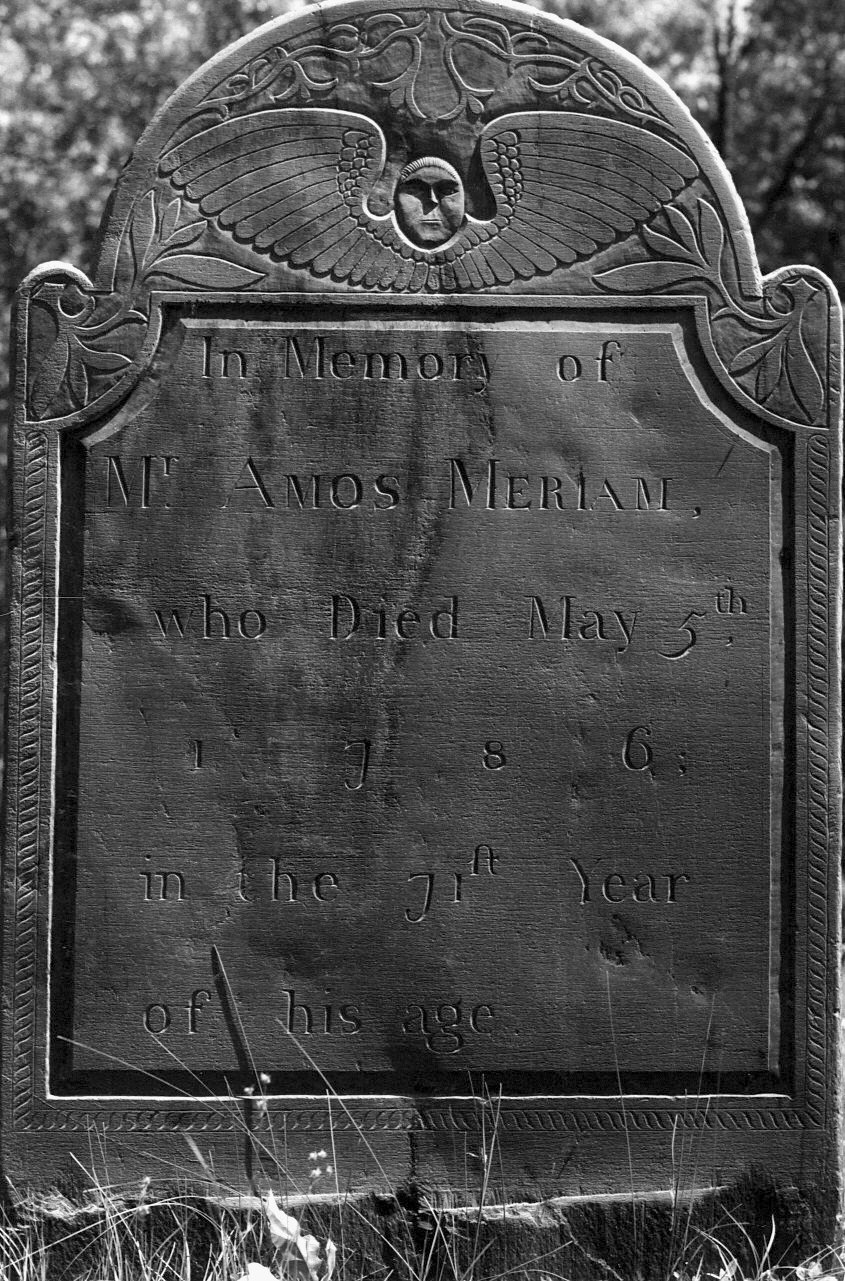 In Memory of
Mr. Amos Meriam,
who Died May 5th,
1786;
in the 71st Year
of his age.